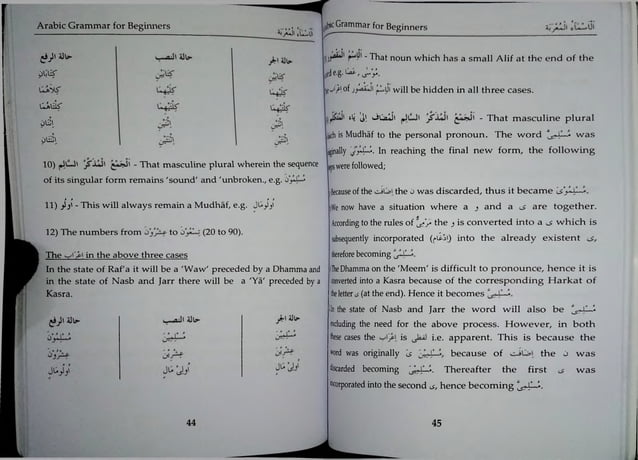 Arabic Grammar for Beginners اَلْاَسْمَآءُ الْمُعْرَبَة
حالة الرفع حالة النصب حالة الجر
كِتَابَانِ كِتَابَيْنِ كِتَابَيْنِ
كِلَاهُمَا كِلَيْهِمَا كِلَيْهِمَا
كِلْتَاهُمَا كِلْتَيْهِمَا كِلْتَيْهِمَا
اِثْنَانِ اِثْنَيْنِ اِثْنَيْنِ
اِثْنَتَانِ اِثْنَتَيْنِ اِثْنَتَيْنِ
10) اَلْجَمْعُ الْمُذَكَّرُ السَّالِم - That masculine plural wherein the sequence
of its singular form remains 'sound' and 'unbroken., e.g. مُسْلِمُوْنَ
11) اُولُو - This will always remain a Mudhāf, e.g. اُولُومَالٍ
12) The numbers from عِشْرُوْنَ to تِسْعُوْنَ (20 to 90).
The اِعْرَاب in the above three cases
In the state of Raf'a it will be a 'Waw' preceded by a Dhamma and
in the state of Nasb and Jarr there will be a 'Yā' preceded by a
Kasra.
حالة الرفع حالة النصب حالة الجر
مُسْلِمُوْنَ مُسْلِمِيْنَ مُسْلِمِيْنَ
عِشْرُوْنَ عِشْرِيْنَ عِشْرِيْنَ
اُولُومَالٍ اُولِىْ مَالٍ اُولِىْ مَالٍ
44
Arabic Grammar for Beginners اَلْاَسْمَآءُ الْمُعْرَبَة
اَلْاِسْمُ الْمَقْصُوْر - That noun which has a small Alif at the end of the
word e.g. عَصًا , مُوْسٰى.
اِعْرَاب of اَلْاِسْمُ الْمَقْصُوْر will be hidden in all three cases.
اَلْجَمْعُ الْمُذَكَّرُ السَّالِم الْمُضَاف اِلىٰ يَاءِ الْمُتَكَلِّم - That masculine plural
which is Mudhāf to the personal pronoun. The word مُسْلِمِىَّ was
originally مُسْلِمُوْنَىَ. In reaching the final new form, the following
steps were followed;
Because of the اِضَافَت the ن was discarded, thus it became مُسْلِمُوْىَ.
We now have a situation where a و and a ى are together.
According to the rules of مَرْمِىٌّ the و is converted into a ى which is
subsequently incorporated (اِدْغَام) into the already existent ى,
therefore becoming مُسْلِمُىَّ.
The Dhamma on the 'Meem' is difficult to pronounce, hence it is
converted into a Kasra because of the corresponding Harkat of
the letter ى (at the end). Hence it becomes مُسْلِمِىَّ.
In the state of Nasb and Jarr the word will also be مُسْلِمِىَّ
excluding the need for the above process. However, in both
these cases the اِعْرَاب is لفظى i.e. apparent. This is because the
word was originally مُسْلِمِيْنَ ىَ, because of اِضَافَت the ن was
discarded becoming مُسْلِمِيْىَ. Thereafter the first ى was
incorporated into the second ى, hence becoming مُسْلِمِىَّ.
45